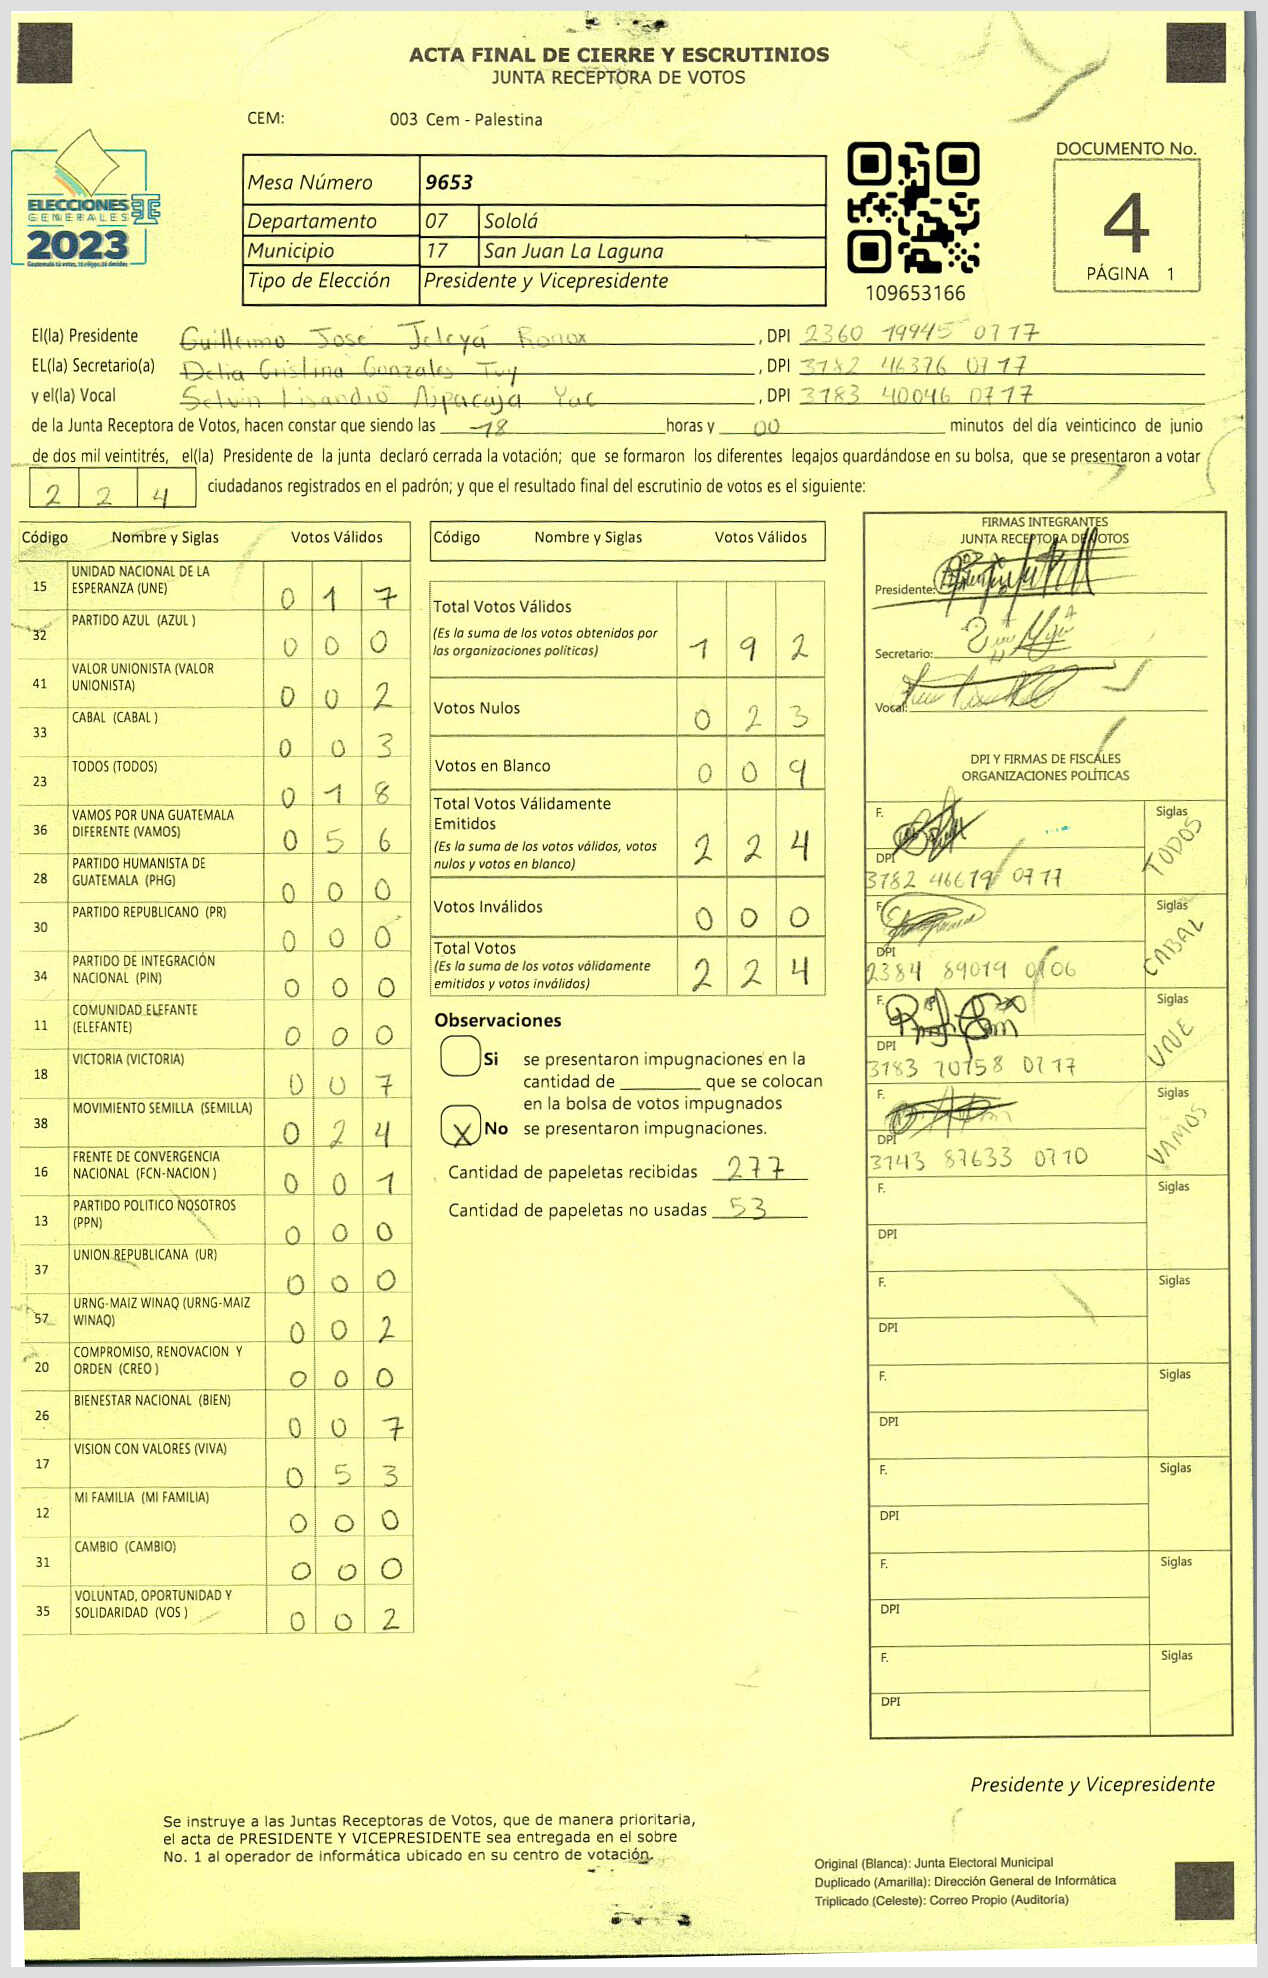 ACTA FINAL DE CIERRE Y ESCRUTINIOS
JUNTA RECEPTORA DE VOTOS
CEM: 003 Cem - Palestina
ELECCIONES
GENERALES
2023
Mesa Número 9653
Departamento 07 Sololá
Municipio 17 San Juan La Laguna
Tipo de Elección Presidente y Vicepresidente
109653166
DOCUMENTO No.
4
PÁGINA 1
El(la) Presidente Guillermo José , DPI 2360 19945 0717
EL(la) Secretario(a) Delia Cristina Gonzales Tuy , DPI 3782 46376 0717
y el(la) Vocal Selvin Lisandro Ajpacajá Yac , DPI 3783 40046 0717
de la Junta Receptora de Votos, hacen constar que siendo las 18 horas y 00 minutos del día veinticinco de junio
de dos mil veintitrés, el(la) Presidente de la junta declaró cerrada la votación; que se formaron los diferentes legajos guardándose en su bolsa, que se presentaron a votar
2 2 4 ciudadanos registrados en el padrón; y que el resultado final del escrutinio de votos es el siguiente:
Código Nombre y Siglas Votos Válidos
15 UNIDAD NACIONAL DE LA
ESPERANZA (UNE) 0 1 7
32 PARTIDO AZUL (AZUL ) 0 0 0
41 VALOR UNIONISTA (VALOR
UNIONISTA) 0 0 2
33 CABAL (CABAL ) 0 0 3
23 TODOS (TODOS) 0 1 8
36 VAMOS POR UNA GUATEMALA
DIFERENTE (VAMOS) 0 5 6
28 PARTIDO HUMANISTA DE
GUATEMALA (PHG) 0 0 0
30 PARTIDO REPUBLICANO (PR) 0 0 0
34 PARTIDO DE INTEGRACIÓN
NACIONAL (PIN) 0 0 0
11 COMUNIDAD ELEFANTE
(ELEFANTE) 0 0 0
18 VICTORIA (VICTORIA) 0 0 7
38 MOVIMIENTO SEMILLA (SEMILLA) 0 2 4
16 FRENTE DE CONVERGENCIA
NACIONAL (FCN-NACION ) 0 0 1
13 PARTIDO POLITICO NOSOTROS
(PPN) 0 0 0
37 UNION REPUBLICANA (UR) 0 0 0
57 URNG-MAIZ WINAQ (URNG-MAIZ
WINAQ) 0 0 2
20 COMPROMISO, RENOVACION Y
ORDEN (CREO ) 0 0 0
26 BIENESTAR NACIONAL (BIEN) 0 0 7
17 VISION CON VALORES (VIVA) 0 5 3
12 MI FAMILIA (MI FAMILIA) 0 0 0
31 CAMBIO (CAMBIO) 0 0 0
35 VOLUNTAD, OPORTUNIDAD Y
SOLIDARIDAD (VOS ) 0 0 2
Código Nombre y Siglas Votos Válidos
Total Votos Válidos
(Es la suma de los votos obtenidos por
las organizaciones políticas) 1 9 2
Votos Nulos 0 2 3
Votos en Blanco 0 0 9
Total Votos Válidamente
Emitidos
(Es la suma de los votos válidos, votos
nulos y votos en blanco) 2 2 4
Votos Inválidos 0 0 0
Total Votos
(Es la suma de los votos válidamente
emitidos y votos inválidos) 2 2 4
Observaciones
Si se presentaron impugnaciones en la
cantidad de ________ que se colocan
en la bolsa de votos impugnados
X No se presentaron impugnaciones.
Cantidad de papeletas recibidas 277
Cantidad de papeletas no usadas 53
FIRMAS INTEGRANTES
JUNTA RECEPTORA DE VOTOS
Presidente:
Secretario:
Vocal:
DPI Y FIRMAS DE FISCALES
ORGANIZACIONES POLÍTICAS
F. Siglas TODOS
DPI
3782 46619 0717
F. Siglas CABAL
DPI
2384 89019 0106
F. Siglas UNE
DPI
3183 70758 0717
F. Siglas VAMOS
DPI
3143 87633 0710
F. Siglas
DPI
F. Siglas
DPI
F. Siglas
DPI
F. Siglas
DPI
F. Siglas
DPI
F. Siglas
DPI
Presidente y Vicepresidente
Se instruye a las Juntas Receptoras de Votos, que de manera prioritaria,
el acta de PRESIDENTE Y VICEPRESIDENTE sea entregada en el sobre
No. 1 al operador de informática ubicado en su centro de votación.
Original (Blanca): Junta Electoral Municipal
Duplicado (Amarilla): Dirección General de Informática
Triplicado (Celeste): Correo Propio (Auditoría)